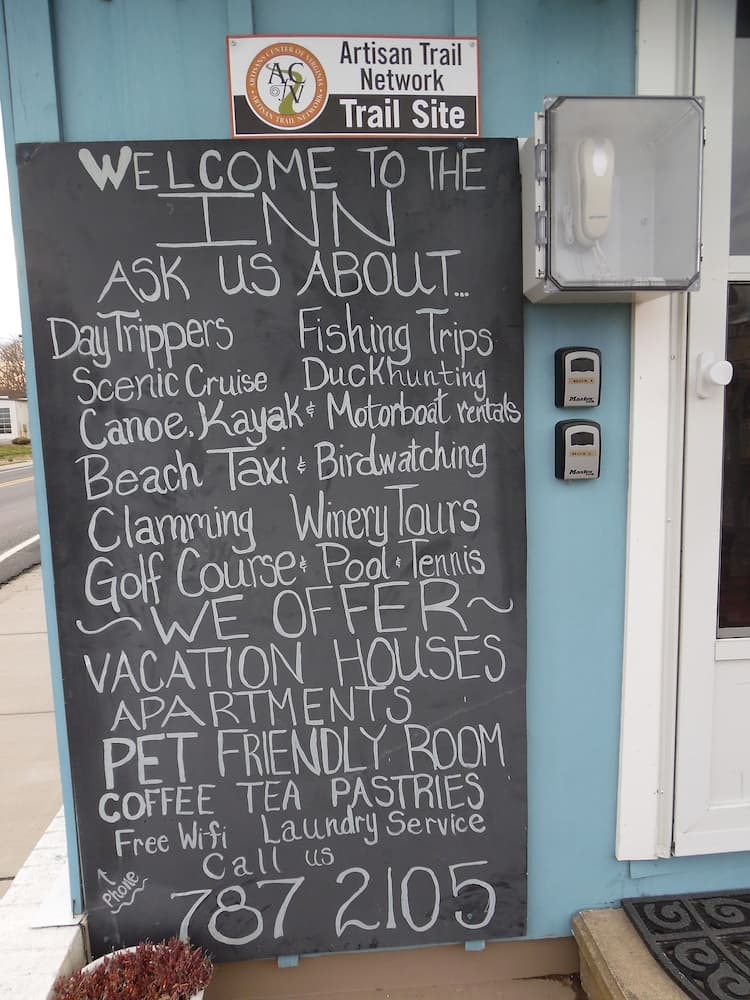 Artisan Trail
Network
Trail Site
ARTISANS CENTER OF VIRGINIA
ACV
ARTISAN TRAIL NETWORK
WELCOME TO THE
INN
ASK US ABOUT...
DayTrippers Fishing Trips
Scenic Cruise Duckhunting
Canoe, Kayak & Motorboat rentals
Beach Taxi & Birdwatching
Clamming Winery Tours
Golf Course & Pool & Tennis
~WE OFFER~
VACATION HOUSES
APARTMENTS
PET FRIENDLY ROOM
COFFEE TEA PASTRIES
Free Wifi Laundry Service
Call us
Phone
787 2105
Master
Master